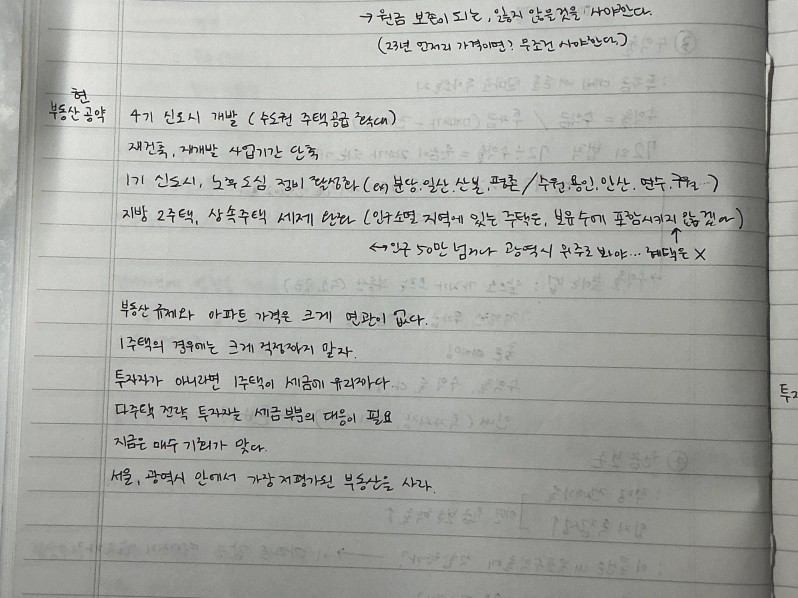 → 원금 보존이 되는, 잃지 않을것을 사야한다.
(23년 언저리 가격이면? 무조건 사야한다.)
현
부동산 공약
4기 신도시 개발 (수도권 주택공급 확대)
재건축, 재개발 사업기간 단축
1기 신도시, 노후 도심 정비 활성화 (ex) 분당, 일산, 산본, 평촌 / 수원, 용인, 안산, 연수, 구월 …)
지방 2주택, 상속주택 세제 완화 (인구소멸 지역에 있는 주택은, 보유 수에 포함시키지 않겠다)
↔ 인구 50만 넘거나 광역시 위주로 봐야… 혜택은 X
부동산 규제와 아파트 가격은 크게 연관이 없다.
1주택의 경우에는 크게 걱정하지 말자.
투자자가 아니라면 1주택이 세금에 유리하다.
다주택 전략 투자자는 세금부분의 대응이 필요
지금은 매수 기회가 맞다.
서울, 광역시 안에서 가장 저평가된 부동산을 사라.
투자